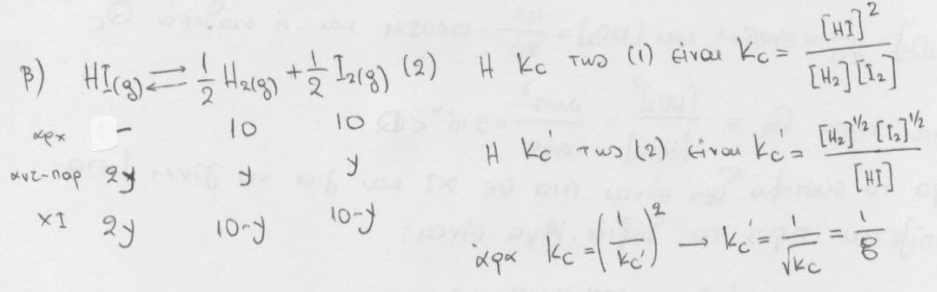 β) HI(g) ⇌ 1/2 H2(g) + 1/2 I2(g) (2)
αρχ - 10 10
αντ-παρ 2y y y
XI 2y 10-y 10-y
Η Kc της (1) είναι Kc = [HI]^2 / [H2][I2]
Η Kc' της (2) είναι Kc' = [H2]^1/2 [I2]^1/2 / [HI]
άρα Kc = (1/Kc')^2 → Kc' = 1/√Kc = 1/8